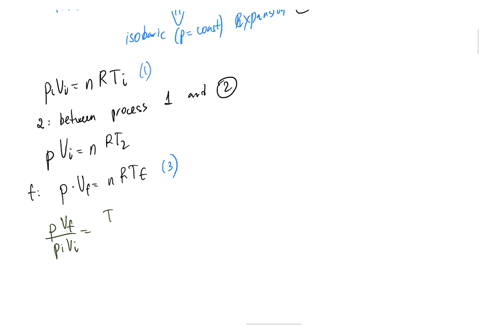 isobaric (p = const) expansion
piVi = nRTi (1)
2: between process 1 and ②
pVi = nRT2
f: p · Vf = nRTf (3)
pVf / piVi = T